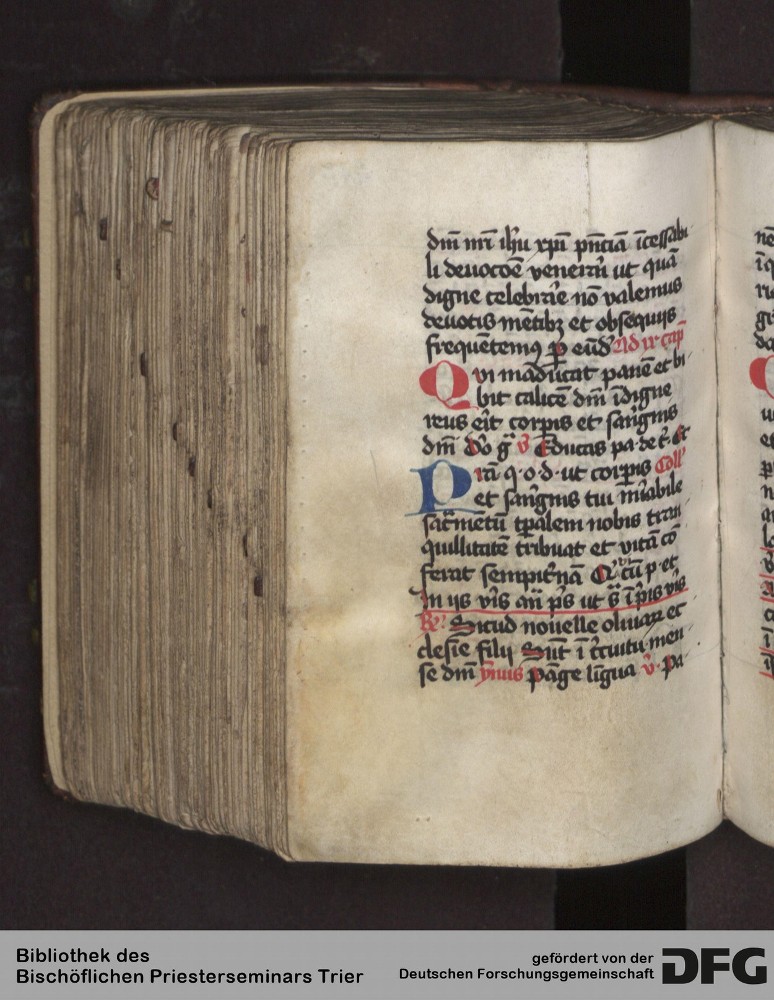 dn̄i nr̄i ih̄u xp̄i pn̄ciā īcessabi
li deuocōe venerr̄i ut quā
digne celebrar̄e nō valemus
deuotis mētibꝫ et obsequijs
frequētemꝰ p̱ eūd' Ad ix cap̄
Qui māducat panē et bi
bit calicē dn̄i īdigne
reus eīt corpis et sāgnis
dn̄i dō gr̄ v̄ Educas pa de t̄ Et
Prā q·o·d·ut corpis Coll'
et sāgnis tui mīabile
sacr̄metū tp̄alem nobis tran
quillitatē tribuat et vitā cō
ferat sempit̄nā Q' tū p et
In ijs vīs an̄ p̄s ut s̄ ī p̄is vīs
R̄. Sicud nouelle oliuaꝝ ec
clesie filij Sūt ī c̄cuitu men
se dn̄i ymꝰ Pāge līgua v̄ Pa
Bibliothek des
Bischöflichen Priesterseminars Trier
gefördert von der
Deutschen Forschungsgemeinschaft
DFG